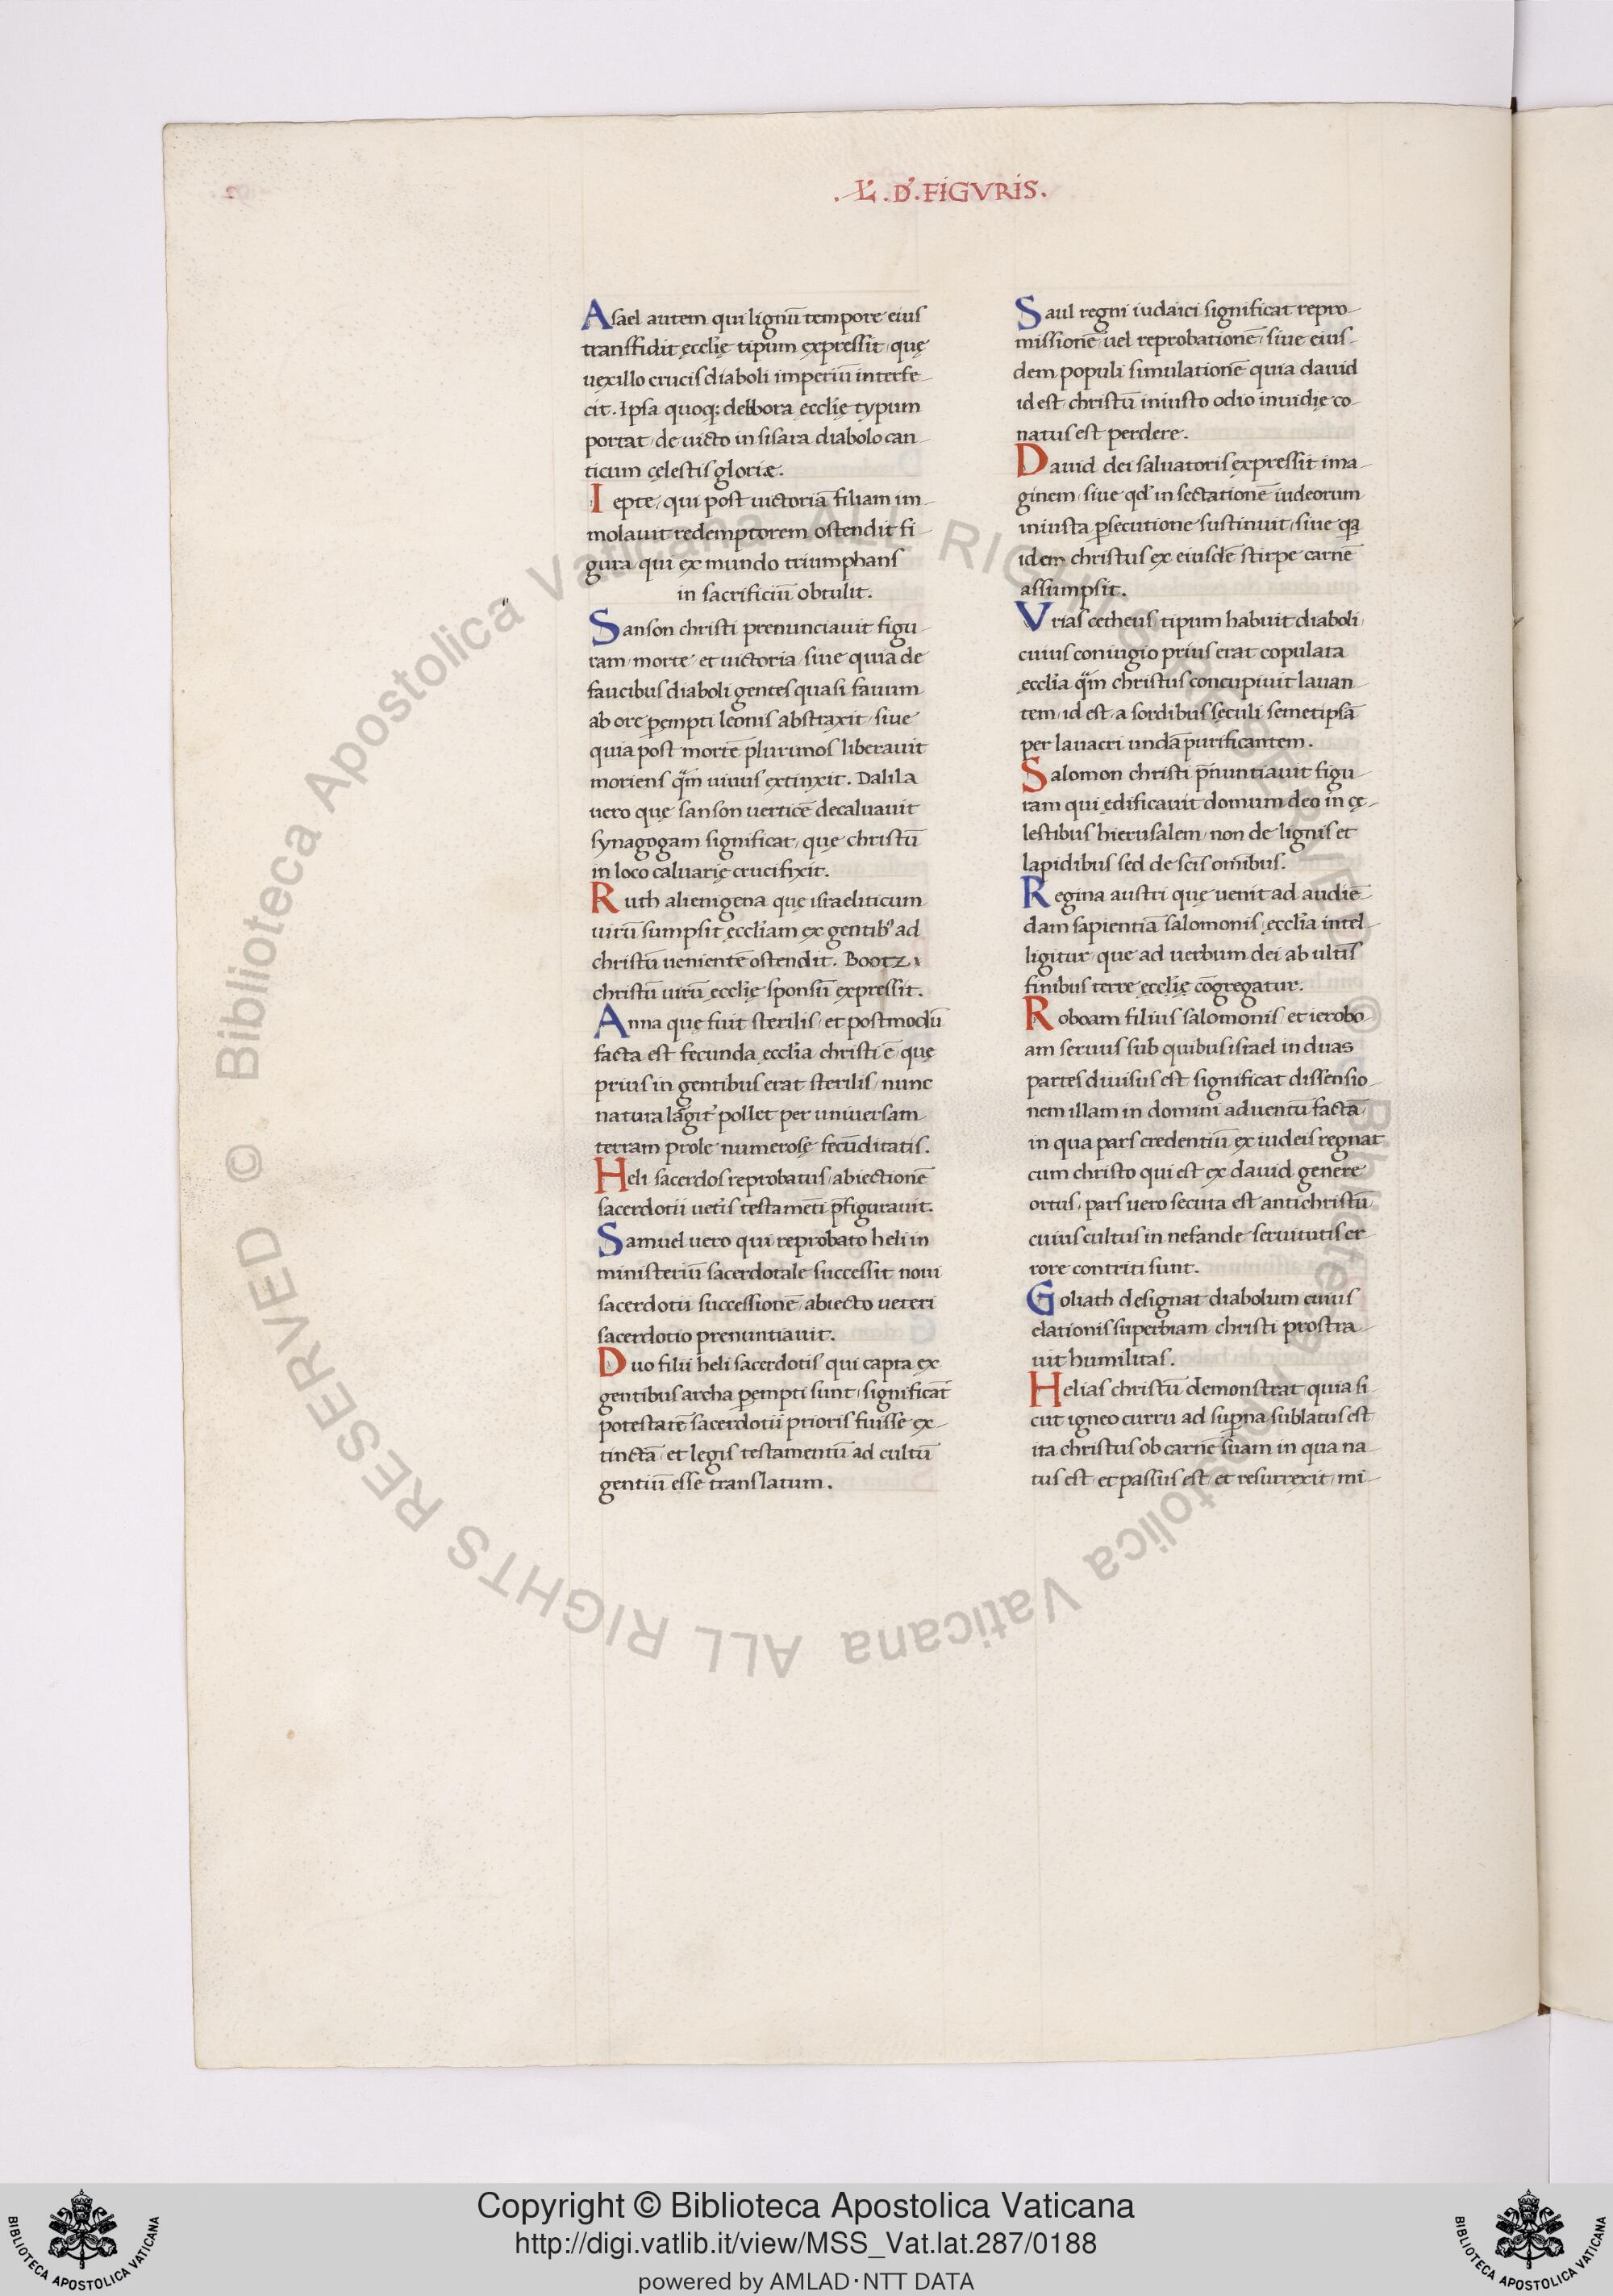 .L̵.D'.FIGVRIS.
Asael autem qui lignū tempore eius
transfidit ęcclīę tipum ęxpressit, quę
uęxillo crucis diaboli imperiū interfe-
cit. Ipsa quoq; debbora ęcclīę typum
portat, de uicto in sisara diabolo can-
ticum cęlestis gloriæ.
Iepte, qui post uictoriā filiam im-
molauit redemptorem ostendit fi-
gura, qui ęx mundo triumphans
in sacrificiū obtulit.
Sanson christi prenunciauit figu-
ram, morte et uictoria, siue quia de
faucibus diaboli gentes quasi fauum
ab ore pempti leonis abstraxit, siue
quia post mortē plurimos liberauit
moriens qm̄ uiuus extinxit. Dalila
uero quę sanson uerticē decaluauit
synagogam significat, quę christū
in loco caluarię crucifixit.
Ruth alienigena quę israeliticum
uirū sumpsit ęccliam ex gentib' ad
christū uenientē ostendit. Bootz,
christū uirū ęcclīę sponsū expressit.
Anna quę fuit sterilis, et postmodū
facta est fecunda, ęccl'ia christi ē, quę
prius in gentibus erat sterilis, nunc
natura lāgit' pollet per uniuersam
terram prole numerosę fecūditatis.
Heli sacerdos reprobatus, abiectionē
sacerdotii uet'is testamēti p̄figurauit.
Samuel uero qui reprobato heli in
ministeriū sacerdotale successit noui
sacerdotii successionē, abiecto ueteri
sacerdotio prenuntiauit.
Duo filii heli sacerdotis qui capta ex
gentibus archa pempti sunt, significāt
potestatē sacerdotii prioris fuisse ex-
tinctā, et legis testamentū ad cultū
gentiū esse translatum.
Saul regni iudaici significat repro-
missionē uel reprobationē, siue eius-
dem populi simulationē quia dauid
id est christū iniusto odio inuidię co-
natus est perdere.
Dauid dei saluatoris ęxpressit ima-
ginem, siue qd' in sectationē iudeorum
iniusta psecutione sustinuit, siue qa
idem christus ex eiusdē stirpe carnē
assumpsit.
Vrias cetheus, tipum habuit diaboli,
cuius coniugio prius erat copulata
ęccl'ia qm̄ christus concupiuit lauan-
tem, id est, a sordibus sęculi semetipsā
per lauacri undā purificantem.
Salomon christi p̄nuntiauit figu-
ram qui ędificauit domum deo in cę-
lestibus hierusalem, non de lignis et
lapidibus sed de sc̄is omībus.
Regina austri quę uenit ad audiē-
dam sapientiā salomonis, ęccl'ia intel-
ligitur, que ad uerbum dei ab ultīs
finibus terre ęcclīę cōgregatur.
Roboam filius salomonis, et ierobo-
am seruus sub quibus israel in duas
partes diuisus est significat dissensio-
nem illam in domini aduentū factā,
in qua pars credentiū ex iudeis regnat
cum christo qui est ex dauid genere
ortus, pars uero secuta est antichristū,
cuius cultus in nefande seruitutis er-
rore contriti sunt.
Goliath designat diabolum cuius
elationis superbiam christi prostra-
uit humilitas.
Helias christū demonstrat, quia si-
cut igneo curru ad supna sublatus est
ita christus ob carnē suam in qua na-
tus est, et passus est, et resurrexit, mi-
© Biblioteca Apostolica Vaticana ALL RIGHTS RESERVED
© Biblioteca Apostolica Vaticana ALL RIGHTS RESERVED
Copyright © Biblioteca Apostolica Vaticana
http://digi.vatlib.it/view/MSS_Vat.lat.287/0188
powered by AMLAD·NTT DATA
BIBLIOTECA APOSTOLICA VATICANA
BIBLIOTECA APOSTOLICA VATICANA